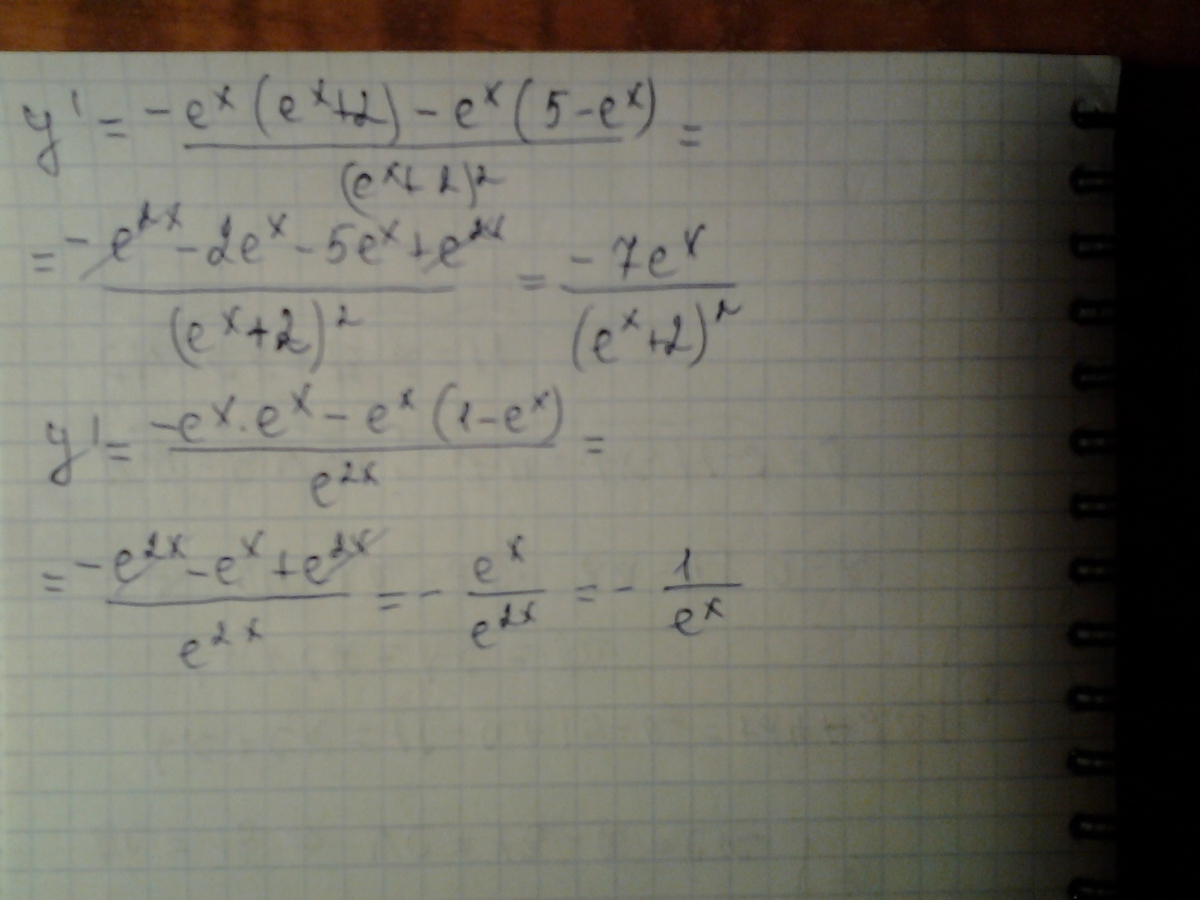 y' = -eˣ(eˣ+2) - eˣ(5-eˣ) / (eˣ+2)² =
= -e²ˣ - 2eˣ - 5eˣ + e²ˣ / (eˣ+2)² = -7eˣ / (eˣ+2)²
y' = -eˣ·eˣ - eˣ(1-eˣ) / e²ˣ =
= -e²ˣ - eˣ + e²ˣ / e²ˣ = - eˣ / e²ˣ = - 1 / eˣ